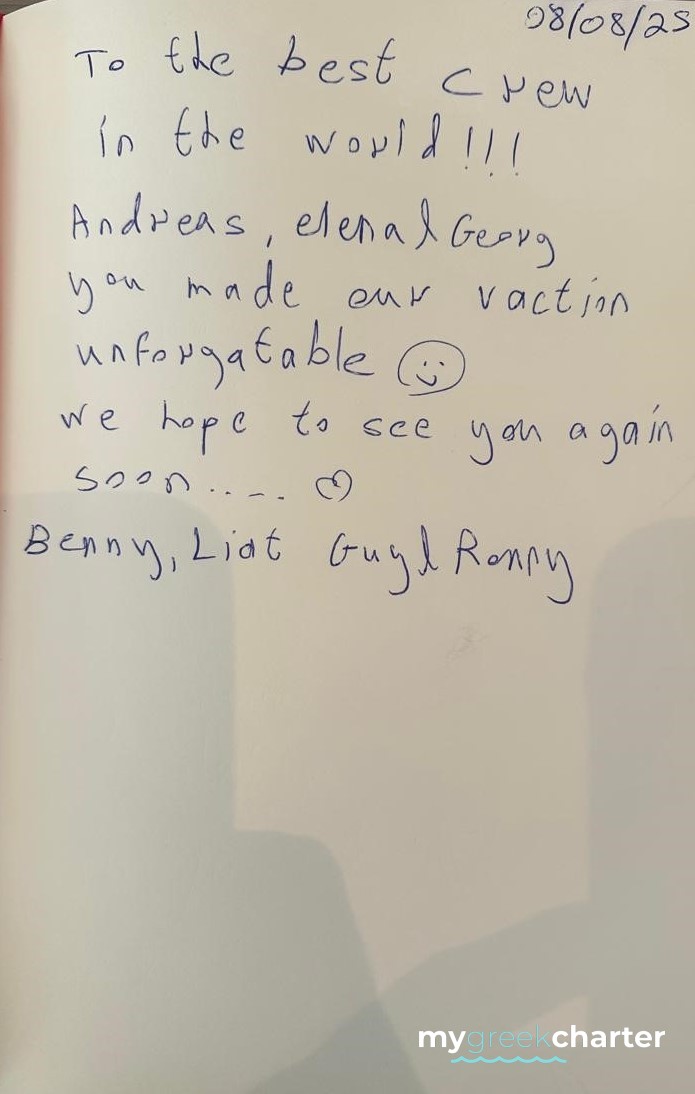 08/08/25
To the best crew
in the world!!!
Andreas, elena & Georg
you made our vaction
unforgatable ☺
we hope to see you again
soon..... ♡
Benny, Liat Guy & Ronny
mygreekcharter